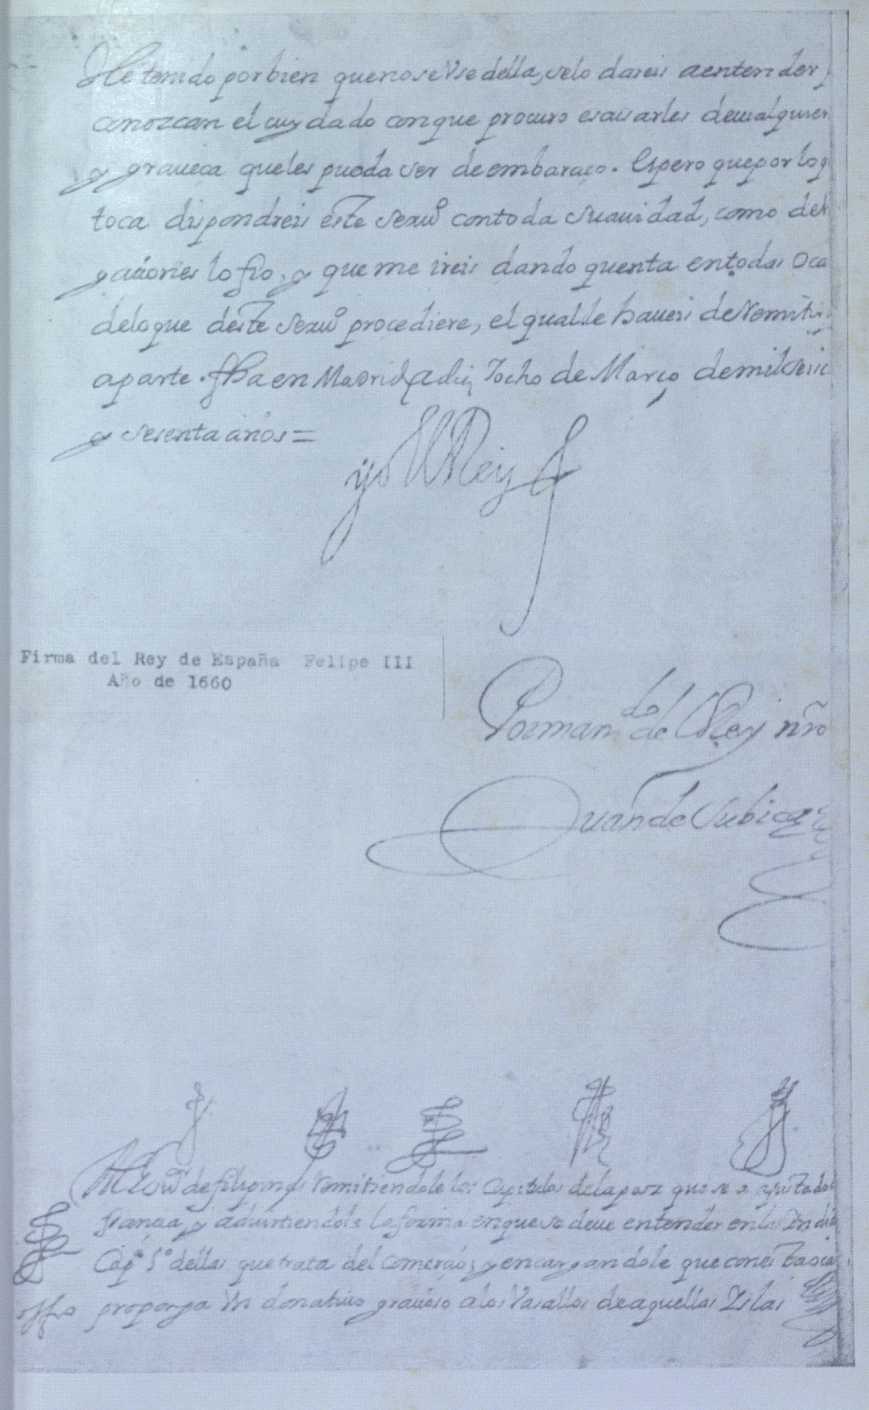 He tenido por bien que no se Vse della, se lo dareis a entender y
conozcan el cuydado con que procuro escusarles de cualquier
y graueça que les pueda ser de embaraço. Espero que por lo q
toca dispondreis este seruº con toda suauidad, como de
y aciones lo fio, y que me ireis dando quenta en todas Oca
de lo que deste seruº procediere, el qual le haueis de Remitir
aparte. fha en Madrid a diez Y ocho de Março de mil seisc
y sesenta años =
yo El Rey
Firma del Rey de España Felipe III
Año de 1660
Por mando del Rey nro
Juan de Subiça
Al Gour de filipinas Remitiendole los Capitulos de la paz que se a ajustado
françia, y aduirtiendole la forma en que se deue entender en las Indias
Capº 5º dellas que trata del Comerçio; y encargandole que con esta oca
proponga Un donatiuo graçioso a los Vasallos de aquellas Yslas